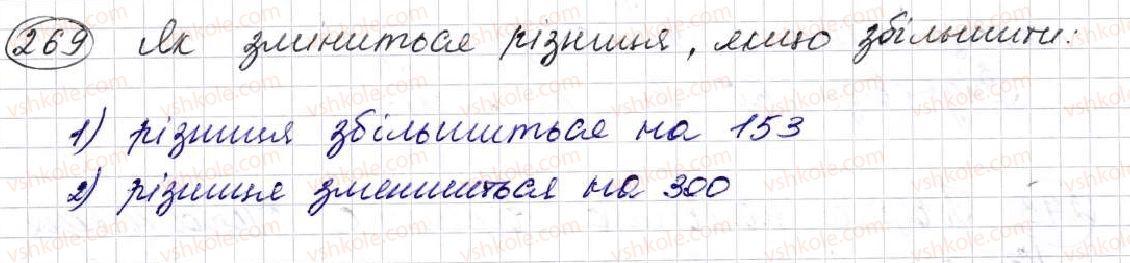 269 Як зміниться різниця, якщо збільшити:
1) різниця збільшиться на 153
2) різниця зменшиться на 300